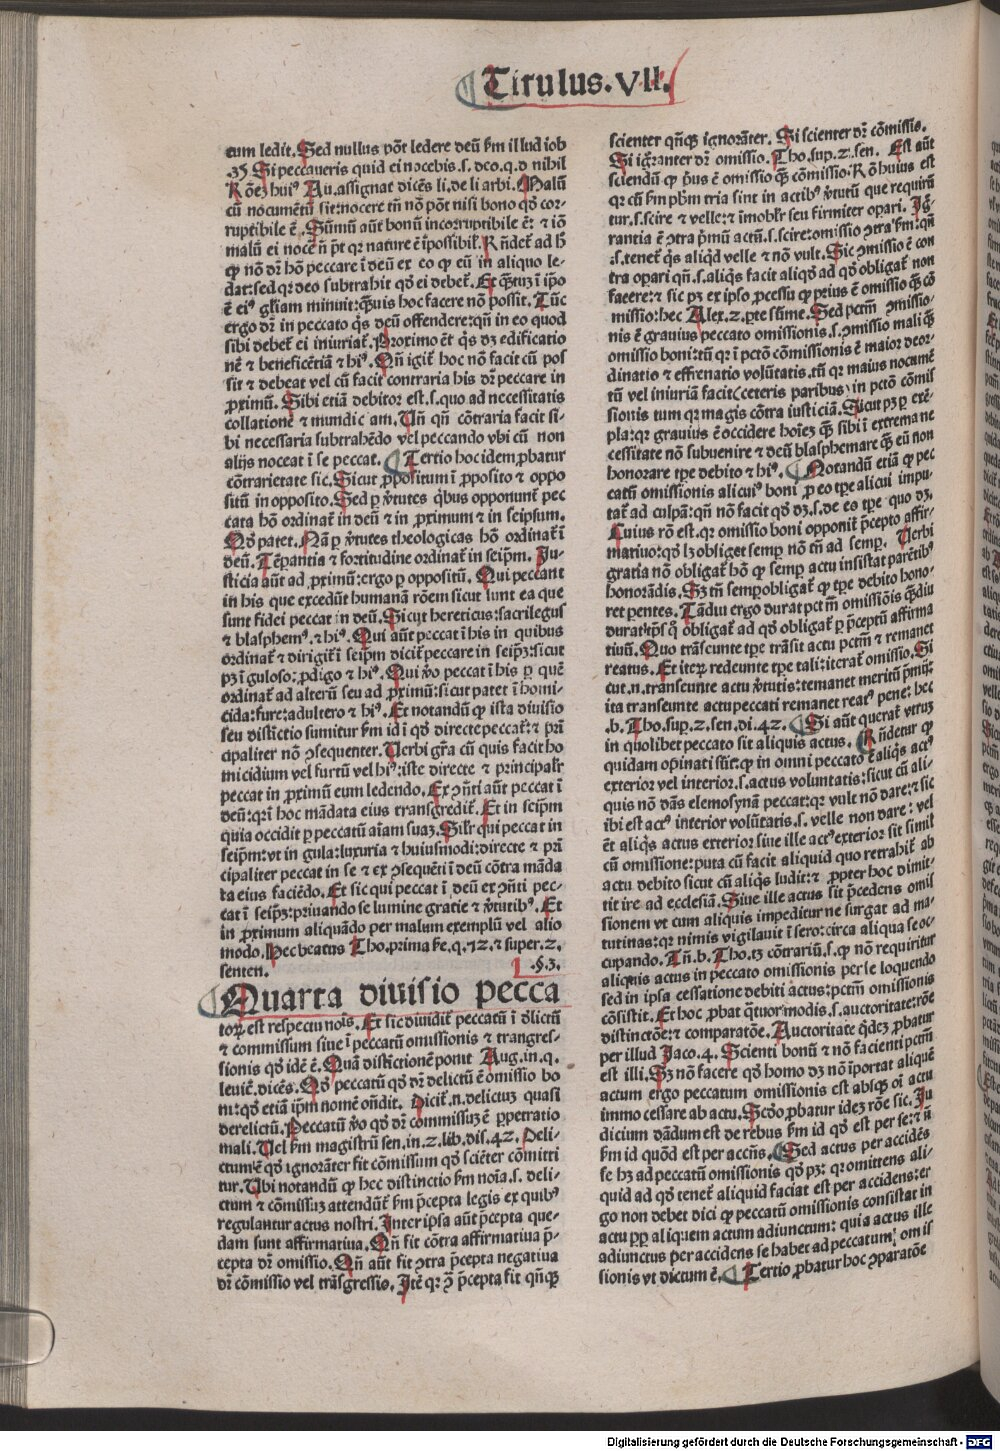 Titulus.VII.
eum ledit. Sed nullus põt ledere deũ ẜm illud iob
.35 Si peccaueris quid ei nocebis.ſ. deo.q.d nihil
Rõẽ huiꝰ Au.assignat dicẽs li.de li arbi. Malũ
cũ nocumẽtũ sit:nocere tñ nõ põt nisi bono qđ cor-
ruptibile ẽ. Sũmũ aũt bonũ incorruptibile ẽ: ⁊ iõ
dat: sed qꝛ deo subtrahit qđ ei debet̃.
ẽ eiꝰ gl̃iam minuit: q̃uis hoc facere nõ possit. Tũc
ergo dꝛ̃ in peccato q̃s deũ offendere: qñ in eo quod
sibi debet̃ ei iniuriat̃. Proximo ẽt q̃s dꝫ edificatio
nẽ ⁊ beneficẽtiã ⁊ hiꝰ. Qñ igit̃ hoc nõ facit cũ pos
sit ⁊ debeat vel cũ facit contraria his dꝛ̃ peccare in
ꝓximũ. Sibi etiã debitor est.ſ.quo ad necessitatis
collationẽ ⁊ mundic am. Vñ qñ cõtraria facit si-
bi necessaria subtrahẽdo vel peccando vbi cũ non
alijs noceat ĩ se peccat. Tertio hoc idem ꝓbatur
cõtrarietate sic. Sicut ꝓpositum ĩ ꝓposito ⁊ oppo
situ in opposito. Sed ꝑ ṽtutes q̃bus opponunt̃ pec
cata hõ ordinat̃ in deũ ⁊ in ꝓximum ⁊ in seipsum.
Qđ patet. Nã ꝑ ṽtutes theologicas hõ ordinat̃ ĩ
deũ. Tẽꝑantia ⁊ fortitudine ordinat̃ in seip̃m. Ju-
sticia aũt ad ꝓximũ: ergo ꝑ oppositũ. Qui peccant
in his que excedũt humanã rõem sicut sunt ea que
sunt fidei peccat in deũ. Sicut hereticus: sacrilegus
⁊ blasphemꝰ.⁊ hiꝰ. Qui aũt peccat ĩ his in quibus
ordinat̃ ⁊ dirigit̃ ĩ seip̃m dicit̃ peccare in seip̃ꝫ: sicut
pꝫ ĩ guloso: ꝓdigo ⁊ hiꝰ. Qui ṽo peccat ĩ his ꝑ quẽ
ordinat̃ ad alterũ seu ad ꝓximũ: sicut patet ĩ homi-
cida: fure: adultero ⁊ hiꝰ. Et notandũ ꝙ ista diuisio
seu distictio sumitur ẜm id ĩ qđ directe peccat̃: ⁊ pri̇
cipaliter nõ ꝯsequenter. Verbi gr̃a cũ quis facit ho
micidium vel furtũ vel hiꝰ: iste directe ⁊ principalr̃
peccat in ꝓximũ eum ledendo. Ex ꝯñti aũt peccat ĩ
deũ: qꝛ ĩ hoc mãdata eius transgredit̃. Et in seip̃m
quia occidit ꝑ peccatũ aĩam suaꝫ. Silr̃ qui peccat in
seip̃m: vt in gula: luxuria ⁊ huiusmodi: directe ⁊ pri̇
cipaliter peccat in se ⁊ ex ꝯsequẽti ĩ deũ cõtra mãda
ta eius faciẽdo. Et sic qui peccat ĩ deũ ex ꝯñti pec-
cat ĩ seip̃ꝫ: priuando se lumine gratie ⁊ ṽtutibꝰ. Et
in ꝓximum aliquãdo per malum exemplũ vel alio
modo. Hec beatus Tho. prima ẜe.q.72.⁊ super.2.
senten. .§.3.
Quarta diuisio pecca
toꝝ est respectu nõis. Et sic diuidit̃ peccatũ ĩ delictũ
⁊ commissum siue ĩ peccatũ omissionis ⁊ trangres-
sionis qđ idẽ ẽ. Quã distictionẽ ponit Aug.in.q.
leuić.dicẽs. Qđ peccatũ qđ dꝛ̃ delictũ ẽ omissio bo
ni: qđ etiã ip̃m nomẽ oñdit. Dicit̃.n.delictuꝫ quasi
derelictũ. Peccatũ ṽo qđ dꝛ̃ commissuꝫ ẽ ꝑpetratio
mali. Vel ẜm magistrũ sen.in.2.lib.dis.42. Deli-
ctum ẽ qđ ignorãter fit cõmissum qđ sciẽter cõmitti
tur. Vbi notandũ ꝙ hec distinctio ẜm noĩa.ſ.deli-
ctum ⁊ cõmissuꝫ attendũt̃ ẜm p̃cepta legis ex quibꝰ
regulantur actus nostri. Inter ipsa aũt p̃cepta que-
dam sunt affirmatiua. Qñ fit cõtra affirmatiua p̃-
cepta dꝛ̃ omissio. Qñ aũt fit ꝯtra p̃cepta negatiua
dꝛ̃ cõmissio vel trãsgressio. Itẽ qꝛ ꝯ̃ p̃cepta fit qñqꝫ
scienter qñqꝫ ignorãter. Si scienter dꝛ̃ cõmissio.
Si igrãnter dꝛ̃ omissio. Tho.sup.2.sen. Est aũt
sciendũ ꝙ p̃us ẽ omissio q̃ꝫ cõmissio. Rõ huius est
qꝛ cũ ẜm ph̃m tria sint in actibꝰ ṽtutũ que requirũ
tur.ſ.scire ⁊ velle: ⁊ imobilr̃ seu firmiter oꝑari. Ig̃
rantia ẽ ꝯtra p̃mũ actũ.ſ.scire: omissio ꝯtra ẜm: qñ
.ſ.tenet̃ q̃s aliqđ velle ⁊ nõ vult. Sic ꝯmissio ẽ con
tra oꝑari qñ.ſ.aliq̃s facit aliqđ ad qđ obligat̃ non
facere: ⁊ sic pꝫ ex ipso ꝓcessu ꝙ prius ẽ omissio q̃ꝫ cõ
missio: hec Alex.2.ꝑte sũme. Sed pctm̃ ꝯmissio-
nis ẽ grauius peccato omissionis.ſ.ꝯmissio mali q̃ꝫ
omissio boni: tũ qꝛ ĩ pctõ cõmissionis ẽ maior deor-
dinatio ⁊ effrenatio volũtatis. tũ qꝛ maius nocumẽ
tũ vel iniuriã facit (ceteris paribus) in pctõ cõmis
sionis tum qꝛ magis cõtra iusticiã. Sicut pꝫ ꝑ exẽ-
pla: qꝛ grauius ẽ occidere hoĩeꝫ q̃ꝫ sibi ĩ extrema ne
cessitate nõ subuenire ⁊ deũ blasphemare q̃ꝫ eũ non
honorare tꝑe debito ⁊ hiꝰ. Notandũ etiã ꝙ pec
catũ omissionis alicuiꝰ boni ꝓ eo tꝑe alicui impu-
tat̃ ad culpã: qñ nõ facit qđ dꝫ.ſ.de eo tꝑe quo dꝫ.
Cuius rõ est. qꝛ omissio boni opponit̃ p̃cepto affir-
matiuo: qđ lꝫ obliget semꝑ nõ tñ ad semꝑ. Verbi
gratia nõ obligat̃ hõ ꝙ semꝑ actu insistat parẽtibꝰ
honorãdis. Sꝫ tñ semꝑ obligat̃ ꝙ tꝑe debito hono-
ret parentes. Tãdiu ergo durat pctm̃ omissiõis q̃ꝫdiu
durat tp̃s q̃ obligat̃ ad qđ obligat̃ ꝑ p̃ceptũ affirma
tiuũ. Quo trãscunte tꝑe trãsit actu pctm̃ ⁊ remanet
reatus. Et iteꝝ redeunte tꝑe tali: iterat̃ omissio. Si
cut.n.transeunte actu ṽtutis: remanet meritũ p̃miũ:
ita transeunte actu peccati remanet reatꝰ pene: hec
.b. Tho.sup.2.sen.di.42. Si aũt querat̃ vtruꝫ
in quolibet peccato sit aliquis actus. Rñdetur ꝙ
quidam opinati sũt: ꝙ in omni peccato ẽ aliq̃s actꝰ
exterior vel interior.ſ.actus voluntatis: sicut cũ ali-
quis nõ dãs elemosynã peccat: qꝛ vult nõ dare: ⁊ sic
ibi est actꝰ interior volũtatis.ſ. velle non dare: vel
ẽt aliq̃s actus exterior siue ille actꝰ exterior sit simĩl
cũ omissione: puta cũ facit aliquid quo retrahit̃ ab
actu debito sicut cũ aliq̃s ludit: ⁊ ꝓpter hoc dimit-
tit ire ad ecclesiã. Siue ille actus sit p̃cedens omis
sionem vt cum aliquis impeditur ne surgat ad ma-
tutinas: qꝛ nimis vigilauit ĩ sero: circa aliqua se oc-
cupando. Tñ.b. Tho.tꝫ cõtrariũ.ſ.ꝙ nõ requiritur
aliquis actus in peccato omissionis per se loquendo
sed in ipsa cessatione debiti actus: pctm̃ omissionis
cõsistit. Et hoc ꝓbat q̃tuor modis.ſ.auctoritate: rõe
distinctõe: ⁊ comparatõe. Auctoritate q̃deꝫ ꝓbatur
per illud Jaco.4. Scienti bonũ ⁊ nõ facienti pctm̃
est illi. Sꝫ nõ facere qđ homo dꝫ nõ ĩportat aliquẽ
actum ergo peccatum omissionis est absqꝫ oĩ actu
immo cessare ab actu. Scđo ꝓbatur ideꝫ rõe sic. Ju
dicium dãdum est de rebus ẜm id qđ est per se: ⁊ ñ
ẜm id quõd est per accñs. Sed actus per accidẽs
se hꝫ ad peccatũ omissionis qđ pꝫ: qꝛ omittens ali-
quid ad qđ tenet̃ aliquid faciat est per accidens: er
go non debet dici ꝙ peccatũ omissionis consistat in
actu ꝓpꝑ aliquem actum adiunctum: quia actus ille
adiunctus per accidens se habet ad peccatum omis
sionis vt dictum ẽ. Tertio ꝓbatur hoc ꝯparatõe
Digitalisierung gefördert durch die Deutsche Forschungsgemeinschaft - DFG